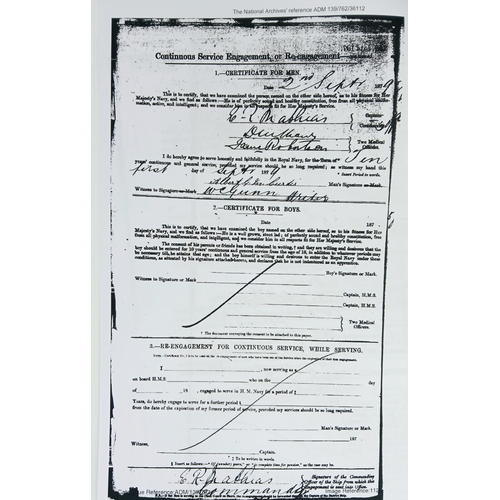 The National Archives' reference ADM 139/762/36112
Continuous Service Engagement or Re-engagement
1.—CERTIFICATE FOR MEN.
Date 2nd Septr 1879
This is to certify, that we have examined the person named on the other side hereof, as to his fitness for Her
Majesty's Navy, and we find as follows:—He is of perfectly sound and healthy constitution, free from all physical
malformation, active, and intelligent; and we consider him in all respects fit for Her Majesty's Service.
E R Mathias
Captain
Two Medical
Officers.
I do hereby agree to serve honestly and faithfully in the Royal Navy, for the term of Ten
years' continuous and general service, provided my service should be so long required; as witness my hand this
first day of Septr 187
* Insert Period in words.
Man's Signature or Mark.
Witness to Signature or Mark
W C Gunn Writer
2.—CERTIFICATE FOR BOYS.
Date 187
This is to certify, that we have examined the boy named on the other side hereof, as to his fitness for Her Majesty's
Navy, and we find as follows:—He is a well grown, stout lad; of perfectly sound and healthy constitution, free
from all physical malformation, and intelligent, and we consider him in all respects fit for Her Majesty's Service.
The consent of his parents or friends has been obtained in writing,† and they are willing and desirous that the
boy should be entered for 10 years' continuous and general service from the age of 18, in addition to whatever periods may
be necessary till he attains that age; and the boy himself is willing and desirous to enter the Royal Navy under these
conditions, as attested by his signature attached hereto, and declares that he is not indentured as an apprentice.
Boy's Signature or Mark.
Witness to Signature or Mark.
Captain, H.M.S.
Captain, H.M.S.
Two Medical
Officers.
† The document conveying the consent to be attached to this paper.
3.—RE-ENGAGEMENT FOR CONTINUOUS SERVICE, WHILE SERVING.
I , now serving as
on board H.M.S. who on the day
of 18 , engaged to serve in H. M. Navy for a period of ‡
Years, do hereby engage to serve for a further period §
from the date of the expiration of my former period of service, provided my services should be so long required.
Man's Signature or Mark.
Witness, 187
Captain.
‡ To be written in words.
§ Insert as follows:— "Of (number) years," or "to complete time for pension," as the case may be.
E R Mathias
Commander
Signature of the Commanding
Officer of the Ship from which the
Engagement is sent into Office.